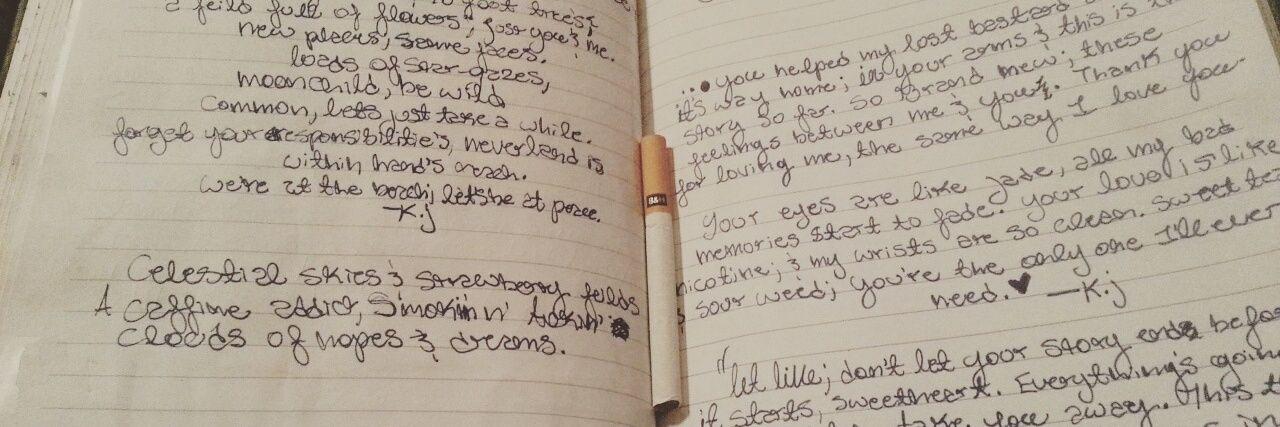 a feild full of flowers; just you & me.
new places, same faces.
loads of star-gazes,
moonchild, be wild
common, lets just take a while.
forget your responsibilitie's, neverland is
within hand's reach.
we're at the beach; lets be at peace.
—K.j
Celestial skies & strawberry feilds
A caffine addict, Smokiin n'
clouds of hopes & dreams.
B&H
...• you helped my lost bastard
it's way home; in your arms & this is
story so far. So brand new; these
feelings between me & you. Thank you
for loving me, the same way I love you.
Your eyes are like jade, all my bad
memories start to fade. Your love, is like
nicotine; & my wrists are so clean. Sweet
sour weed; you're the only one I'll ever
need. ♥ —K.j
"let live; don't let your story ends before
it starts, sweetheart. Everything's going
take you away. This